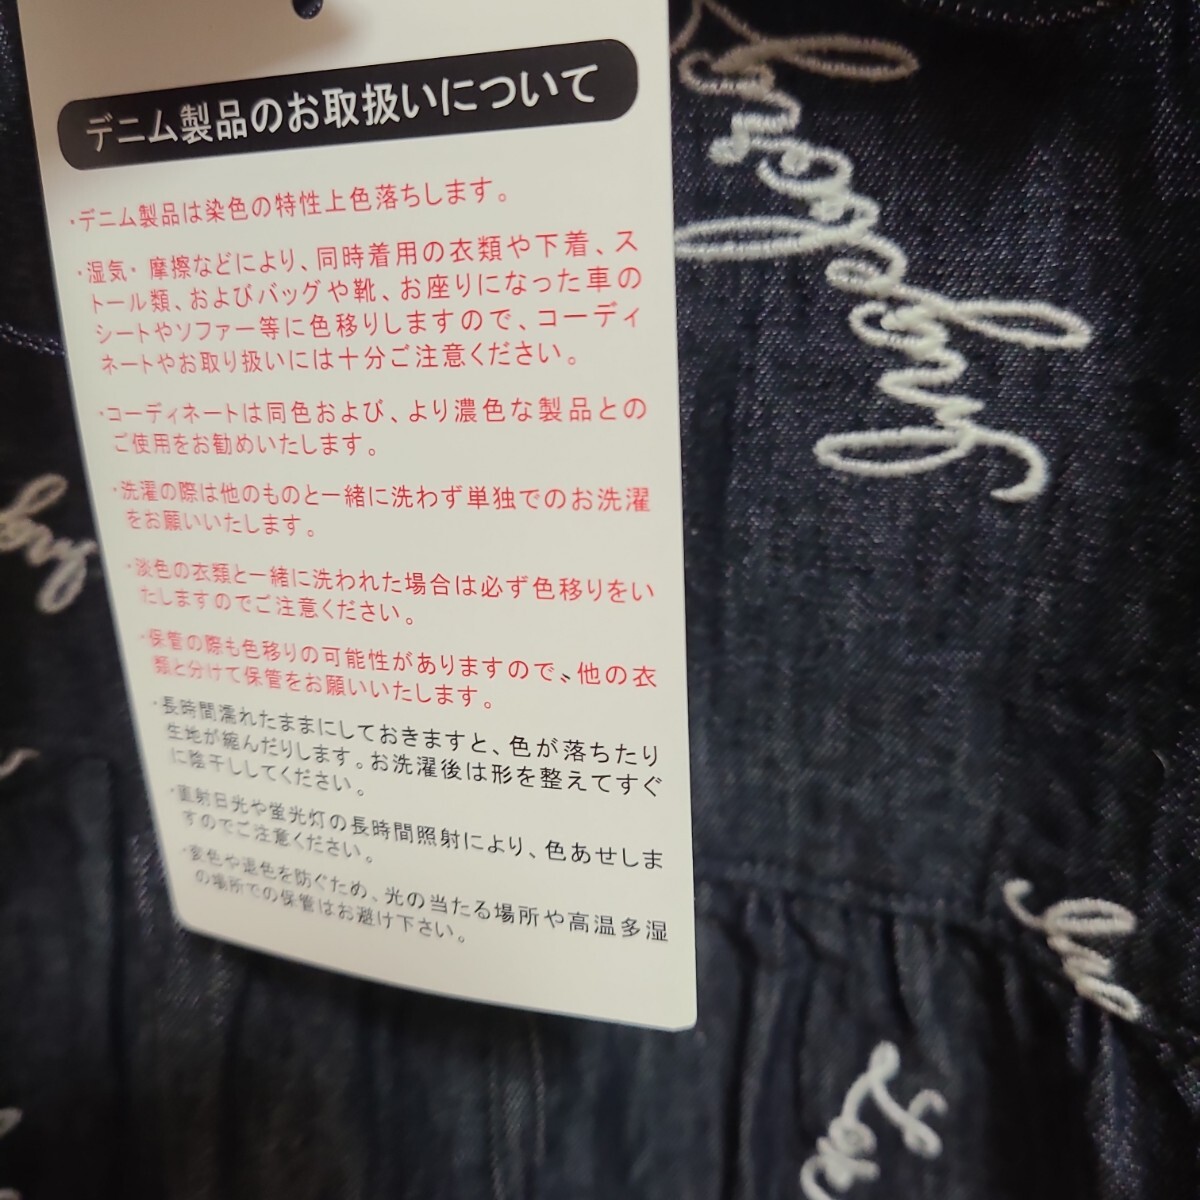 デニム製品のお取扱いについて
・デニム製品は染色の特性上色落ちします。
・湿気・摩擦などにより、同時着用の衣類や下着、ス
トール類、およびバッグや靴、お座りになった車の
シートやソファー等に色移りしますので、コーディ
ネートやお取り扱いには十分ご注意ください。
・コーディネートは同色および、より濃色な製品との
ご使用をお勧めいたします。
・洗濯の際は他のものと一緒に洗わず単独でのお洗濯
をお願いいたします。
・淡色の衣類と一緒に洗われた場合は必ず色移りをい
たしますのでご注意ください。
・保管の際も色移りの可能性がありますので、他の衣
類と分けて保管をお願いいたします。
・長時間濡れたままにしておきますと、色が落ちたり
生地が縮んだりします。お洗濯後は形を整えてすぐ
に陰干ししてください。
・直射日光や蛍光灯の長時間照射により、色あせしま
すのでご注意ください。
・変色や退色を防ぐため、光の当たる場所や高温多湿
の場所での保管はお避け下さい。